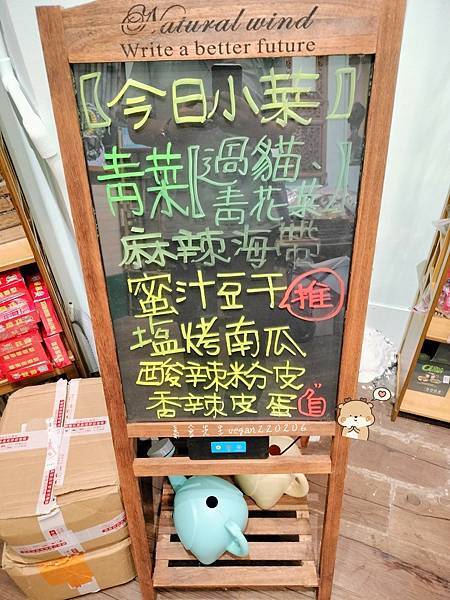 Natural wind
Write a better future
【今日小菜】
青菜【過貓、青花菜】
麻辣海帶
蜜汁豆干 推
塩烤南瓜
酸辣粉皮
香辣皮蛋
vegan220206